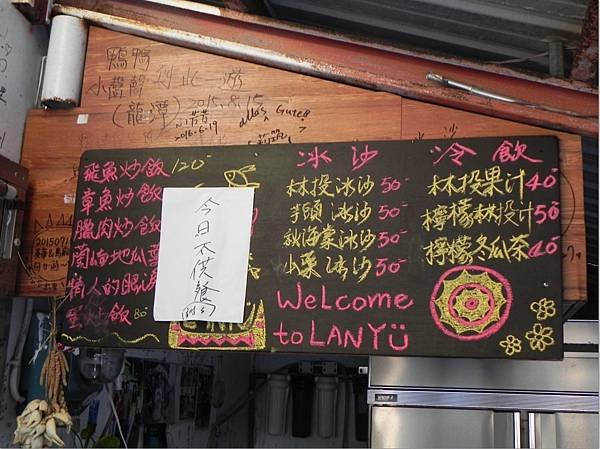 鴨鴨
小蘭嶼 到此一游
(龍潭) 2015.8.15
2016-6-19
Gute!!
飛魚炒飯 120
章魚炒飯
臘肉炒飯
蘭嶼地瓜葉
情人的眼淚
蛋炒飯 80
今日不供餐
冰沙
林投冰沙 50
芋頭冰沙 50
秋海棠冰沙 50
山藥冰沙 50
WeLcome
to LANYÜ
冷飲
林投果汁 40
檸檬林投汁 50
檸檬冬瓜茶 40